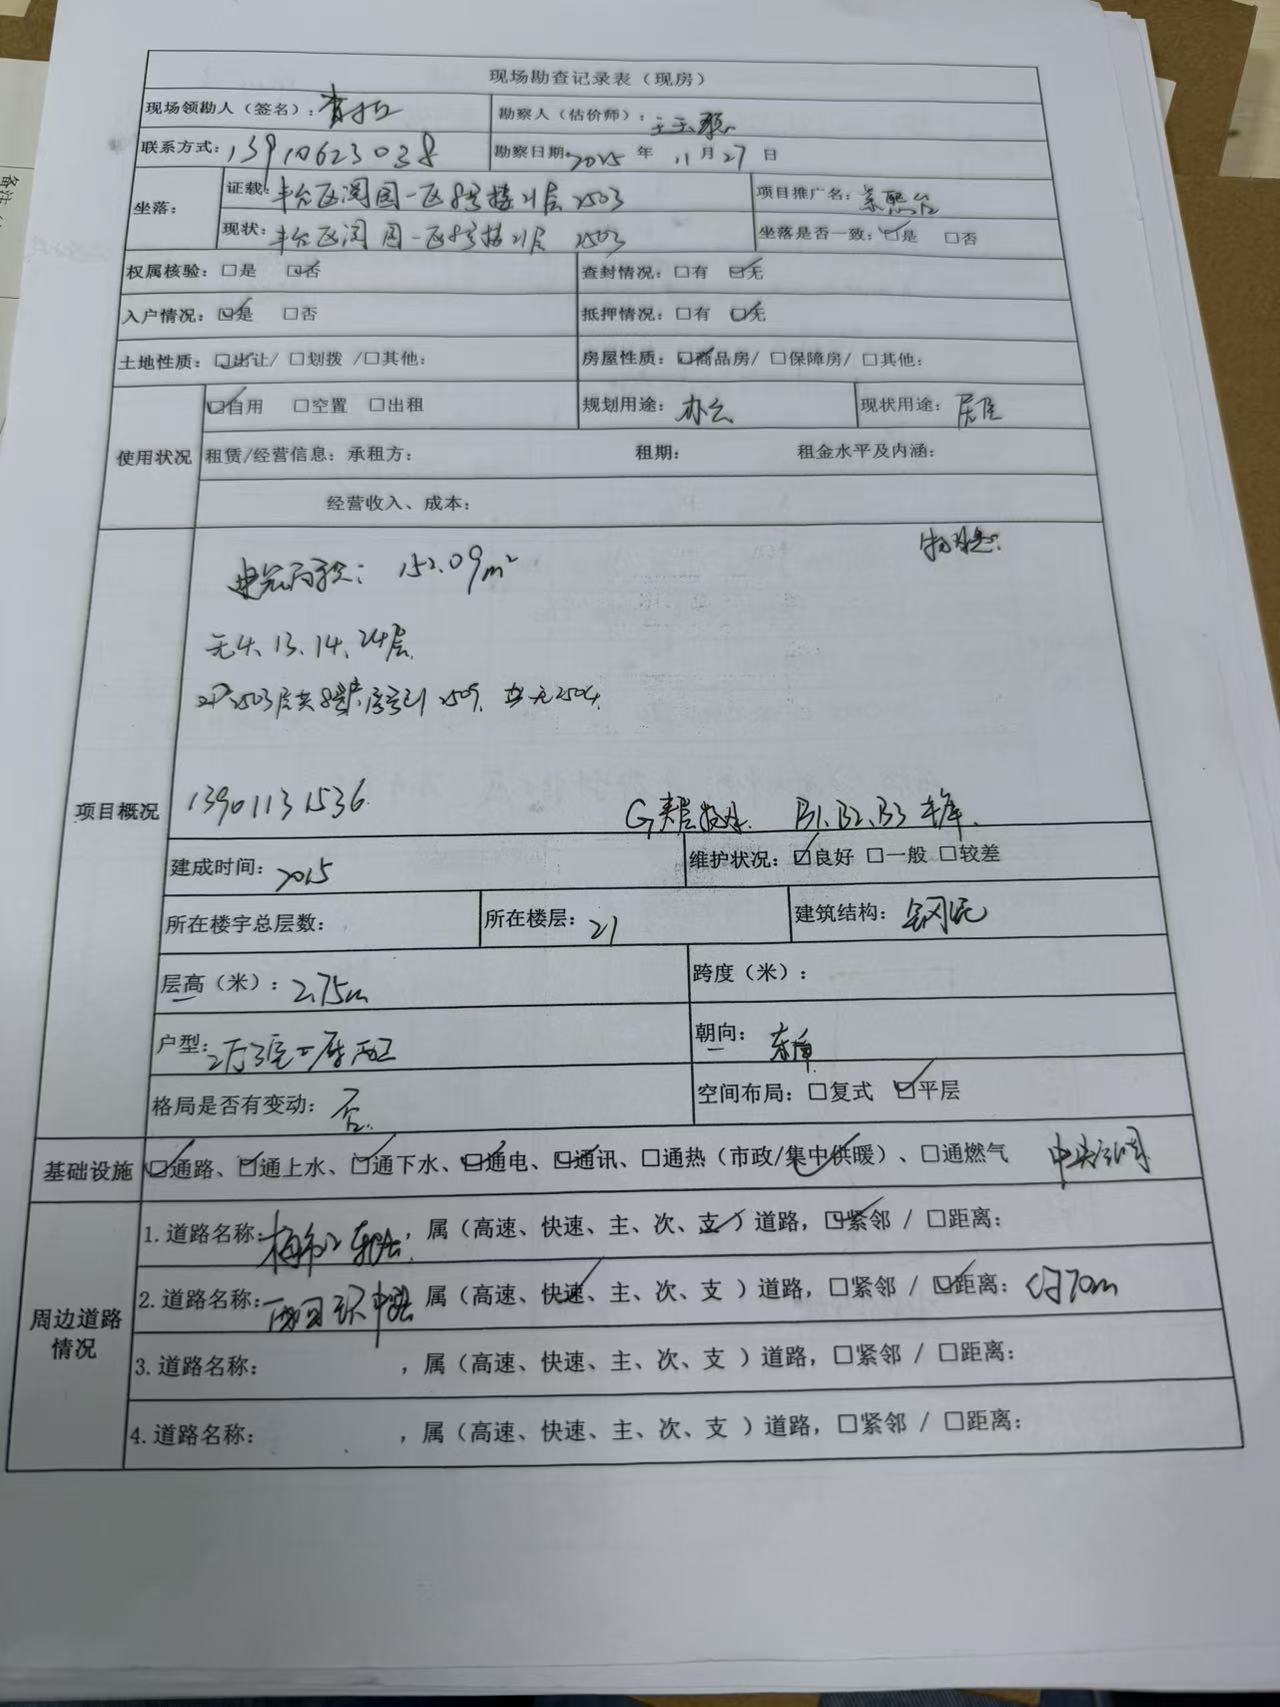 现场勘查记录表（现房）
现场领勘人（签名）： 勘察人（估价师）：
联系方式：13910623038 勘察日期：2025 年 11 月 27 日
坐落： 证载：丰台区阅园一区8号楼21层 2503 项目推广名：景熙台
现状：丰台区阅园一区8号楼21层 2503 坐落是否一致：☑是 □否
权属核验：□是 ☑否 查封情况：□有 ☑无
入户情况：☑是 □否 抵押情况：□有 ☑无
土地性质：☑出让/ □划拨 /□其他： 房屋性质：☑商品房/ □保障房/ □其他：
使用状况 ☑自用 □空置 □出租 规划用途：办公 现状用途：居住
租赁/经营信息：承租方： 租期： 租金水平及内涵：
经营收入、成本：
项目概况
建筑面积：152.09m²
无4、13、14、24层
2503层共8户 序号到2509, 无2504.
13901131536
G夹层 B1、B2、B3 车库.
建成时间：2015 维护状况：☑良好 □一般 □较差
所在楼宇总层数： 所在楼层：21 建筑结构：钢混
层高（米）：2.75m 跨度（米）：
户型： 朝向：东南
格局是否有变动：否. 空间布局：□复式 ☑平层
基础设施 ☑通路、☑通上水、☑通下水、☑通电、☑通讯、□通热（市政/集中供暖）、□通燃气 中央空调
周边道路情况
1.道路名称： ，属（高速、快速、主、次、支 ）道路，☑紧邻 / □距离：
2.道路名称： 属（高速、快速、主、次、支 ）道路，□紧邻 / ☑距离：约70m
3.道路名称： ，属（高速、快速、主、次、支 ）道路，□紧邻 / □距离：
4.道路名称： ，属（高速、快速、主、次、支 ）道路，□紧邻 / □距离：
备注